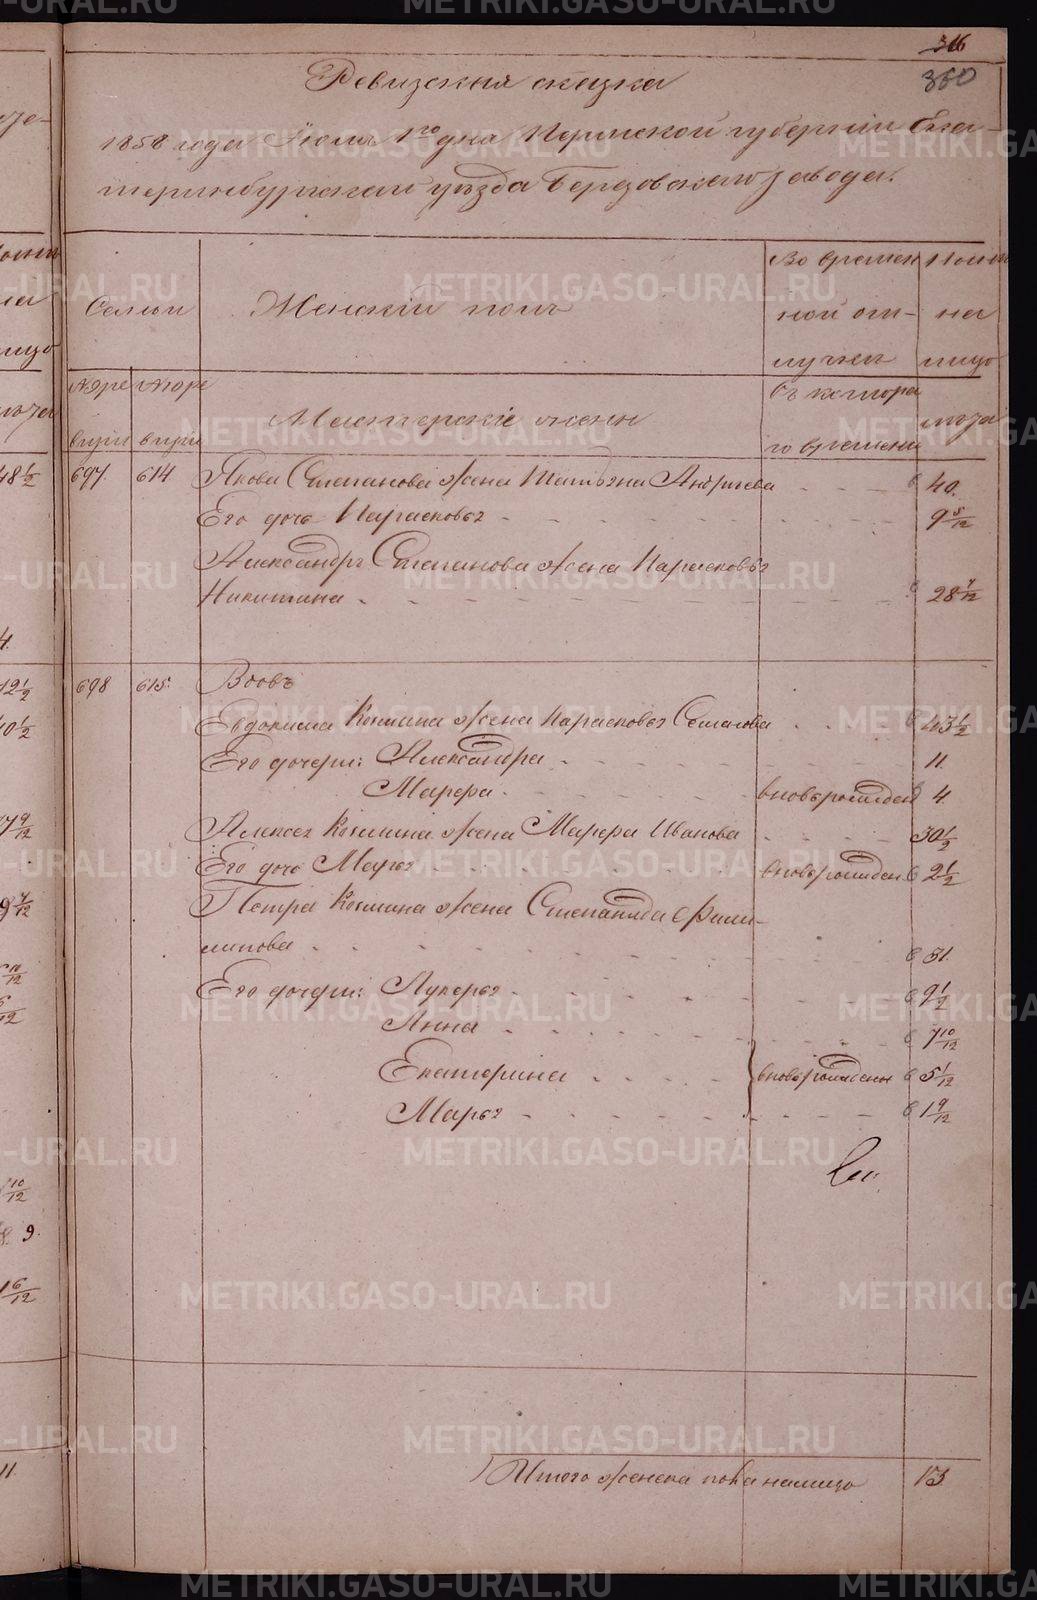 316
360
Ревизская сказка
1858 года Июля 1го дня Пермской губернии Ека-
теринбургскаго уезда Березовскаго завода.
Семьи
Женский полъ
Во времен
ной от-
лучке
Ныне
на
лицо
№ пре
№ по ре
визіи
визіи
Мастерскіе жены
Съ котора
го времени
лета
697.
614
Якова Степанова жена Татьяна Андреева
40.
Его дочь Парасковья
9 5/12
Александръ Степанова жена Парасковья
Никитина
28 7/12
698
615.
Вдовъ
Евдокима Козмина жена Парасковья
43 1/2
Его дочери: Александра
11.
Марфа
вновьрожден
4.
Алексея Козмина жена Марфа Иванова
30 1/2
Его дочь Марья
вновьрожден
2 1/2
Петра Козмина жена Степанида Фили-
липова
31.
Его дочери: Лукерья
9 1/2
Анна
7 10/12
Екатерина
вновьрождены
5 1/12
Марья
1 9/12
Итого женска пола налицо
13
METRIKI.GASO-URAL.RU